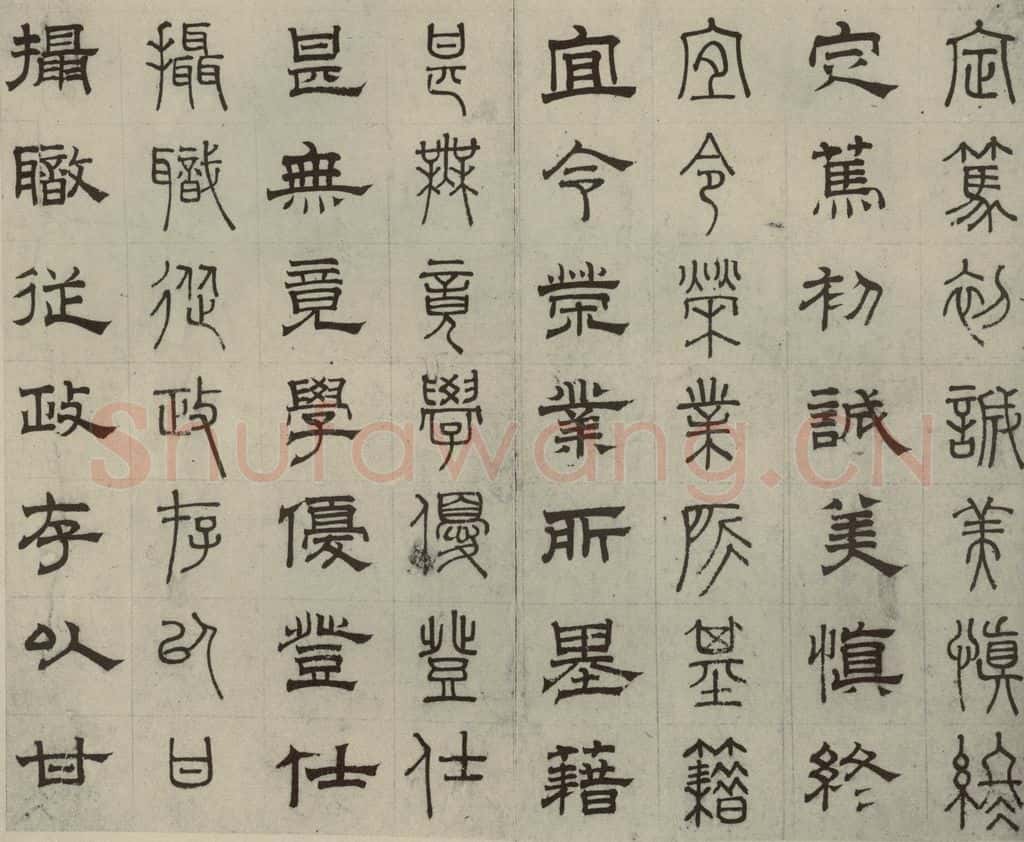 定篤初誠美慎終
定篤初誠美慎終
宜令榮業所基籍
宜令榮業所基籍
甚無竟學優登仕
甚無竟學優登仕
攝職從政存以甘
攝職從政存以甘
Shufawang.CN